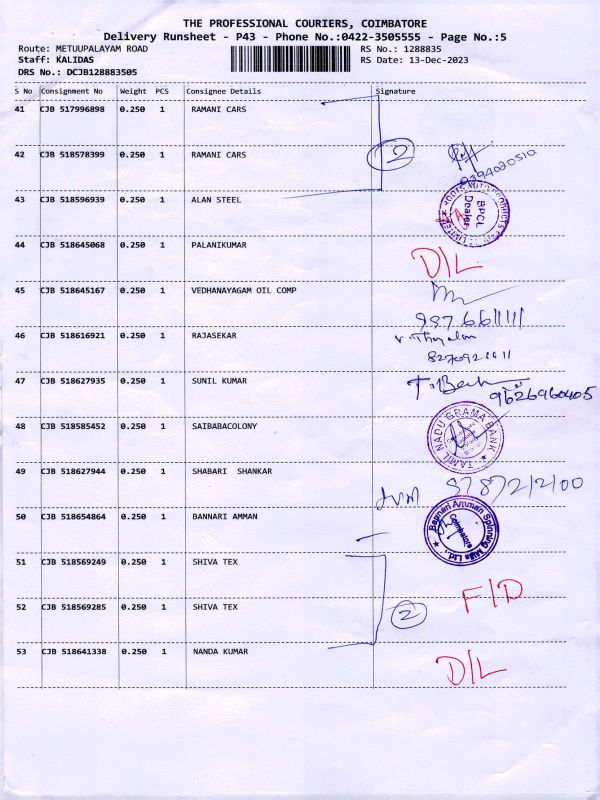 THE PROFESSIONAL COURIERS, COIMBATORE
Delivery Runsheet - P43 - Phone No.:0422-3505555 - Page No.:5
Route: METUUPALAYAM ROAD RS No.: 1288835
Staff: KALIDAS RS Date: 13-Dec-2023
DRS No.: DCJB128883505
S No Consignment No Weight PCS Consignee Details Signature
41 CJB 517996898 0.250 1 RAMANI CARS
2
42 CJB 518578399 0.250 1 RAMANI CARS
43 CJB 518596939 0.250 1 ALAN STEEL
BPCL Dealer
44 CJB 518645068 0.250 1 PALANIKUMAR D/L
45 CJB 518645167 0.250 1 VEDHANAYAGAM OIL COMP
46 CJB 518616921 0.250 1 RAJASEKAR
47 CJB 518627935 0.250 1 SUNIL KUMAR 9626960405
48 CJB 518585452 0.250 1 SAIBABACOLONY TAMIL NADU GRAMA BANK
49 CJB 518627944 0.250 1 SHABARI SHANKAR
50 CJB 518654864 0.250 1 BANNARI AMMAN Bannari Amman Spinning Mills Ltd. Coimbatore
51 CJB 518569249 0.250 1 SHIVA TEX
F/D
52 CJB 518569285 0.250 1 SHIVA TEX 2
53 CJB 518641338 0.250 1 NANDA KUMAR D/L